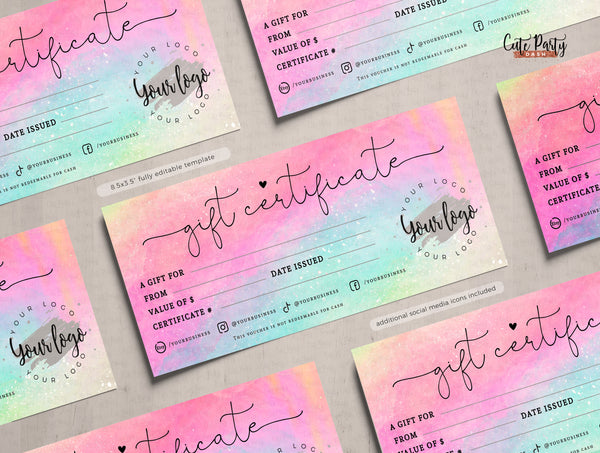 certificate
YOUR LOGO
Your logo
YOUR LOGO
DATE ISSUED
@YOURBUSINESS
/YOURBUSINESS
THIS VOUCHER IS NOT REDEEMABLE FOR CASH
A GIFT FOR
FROM
DATE ISSUED
VALUE OF $
CERTIFICATE #
/YOURBUSINESS
@YOURBUSINESS
@YOURBUSINESS
/YOURBUSINESS
THIS VOUCHER IS NOT REDEEMABLE FOR CASH
Cute Party
DASH
8.5x3.5" fully editable template
gift certificate
A GIFT FOR
FROM
DATE ISSUED
VALUE OF $
CERTIFICATE #
/YOURBUSINESS
@YOURBUSINESS
@YOURBUSINESS
/YOURBUSINESS
THIS VOUCHER IS NOT REDEEMABLE FOR CASH
YOUR LOGO
Your logo
YOUR LOGO
gift
A GIFT FOR
FROM
VALUE OF $
CERTIFICATE #
/YOURBUSINESS
YOUR LOGO
Your logo
YOUR LOGO
additional social media icons included
gift certificate
A GIFT FOR
FROM
VALUE OF $
CERTIFICATE #
certificate
YOUR LOGO